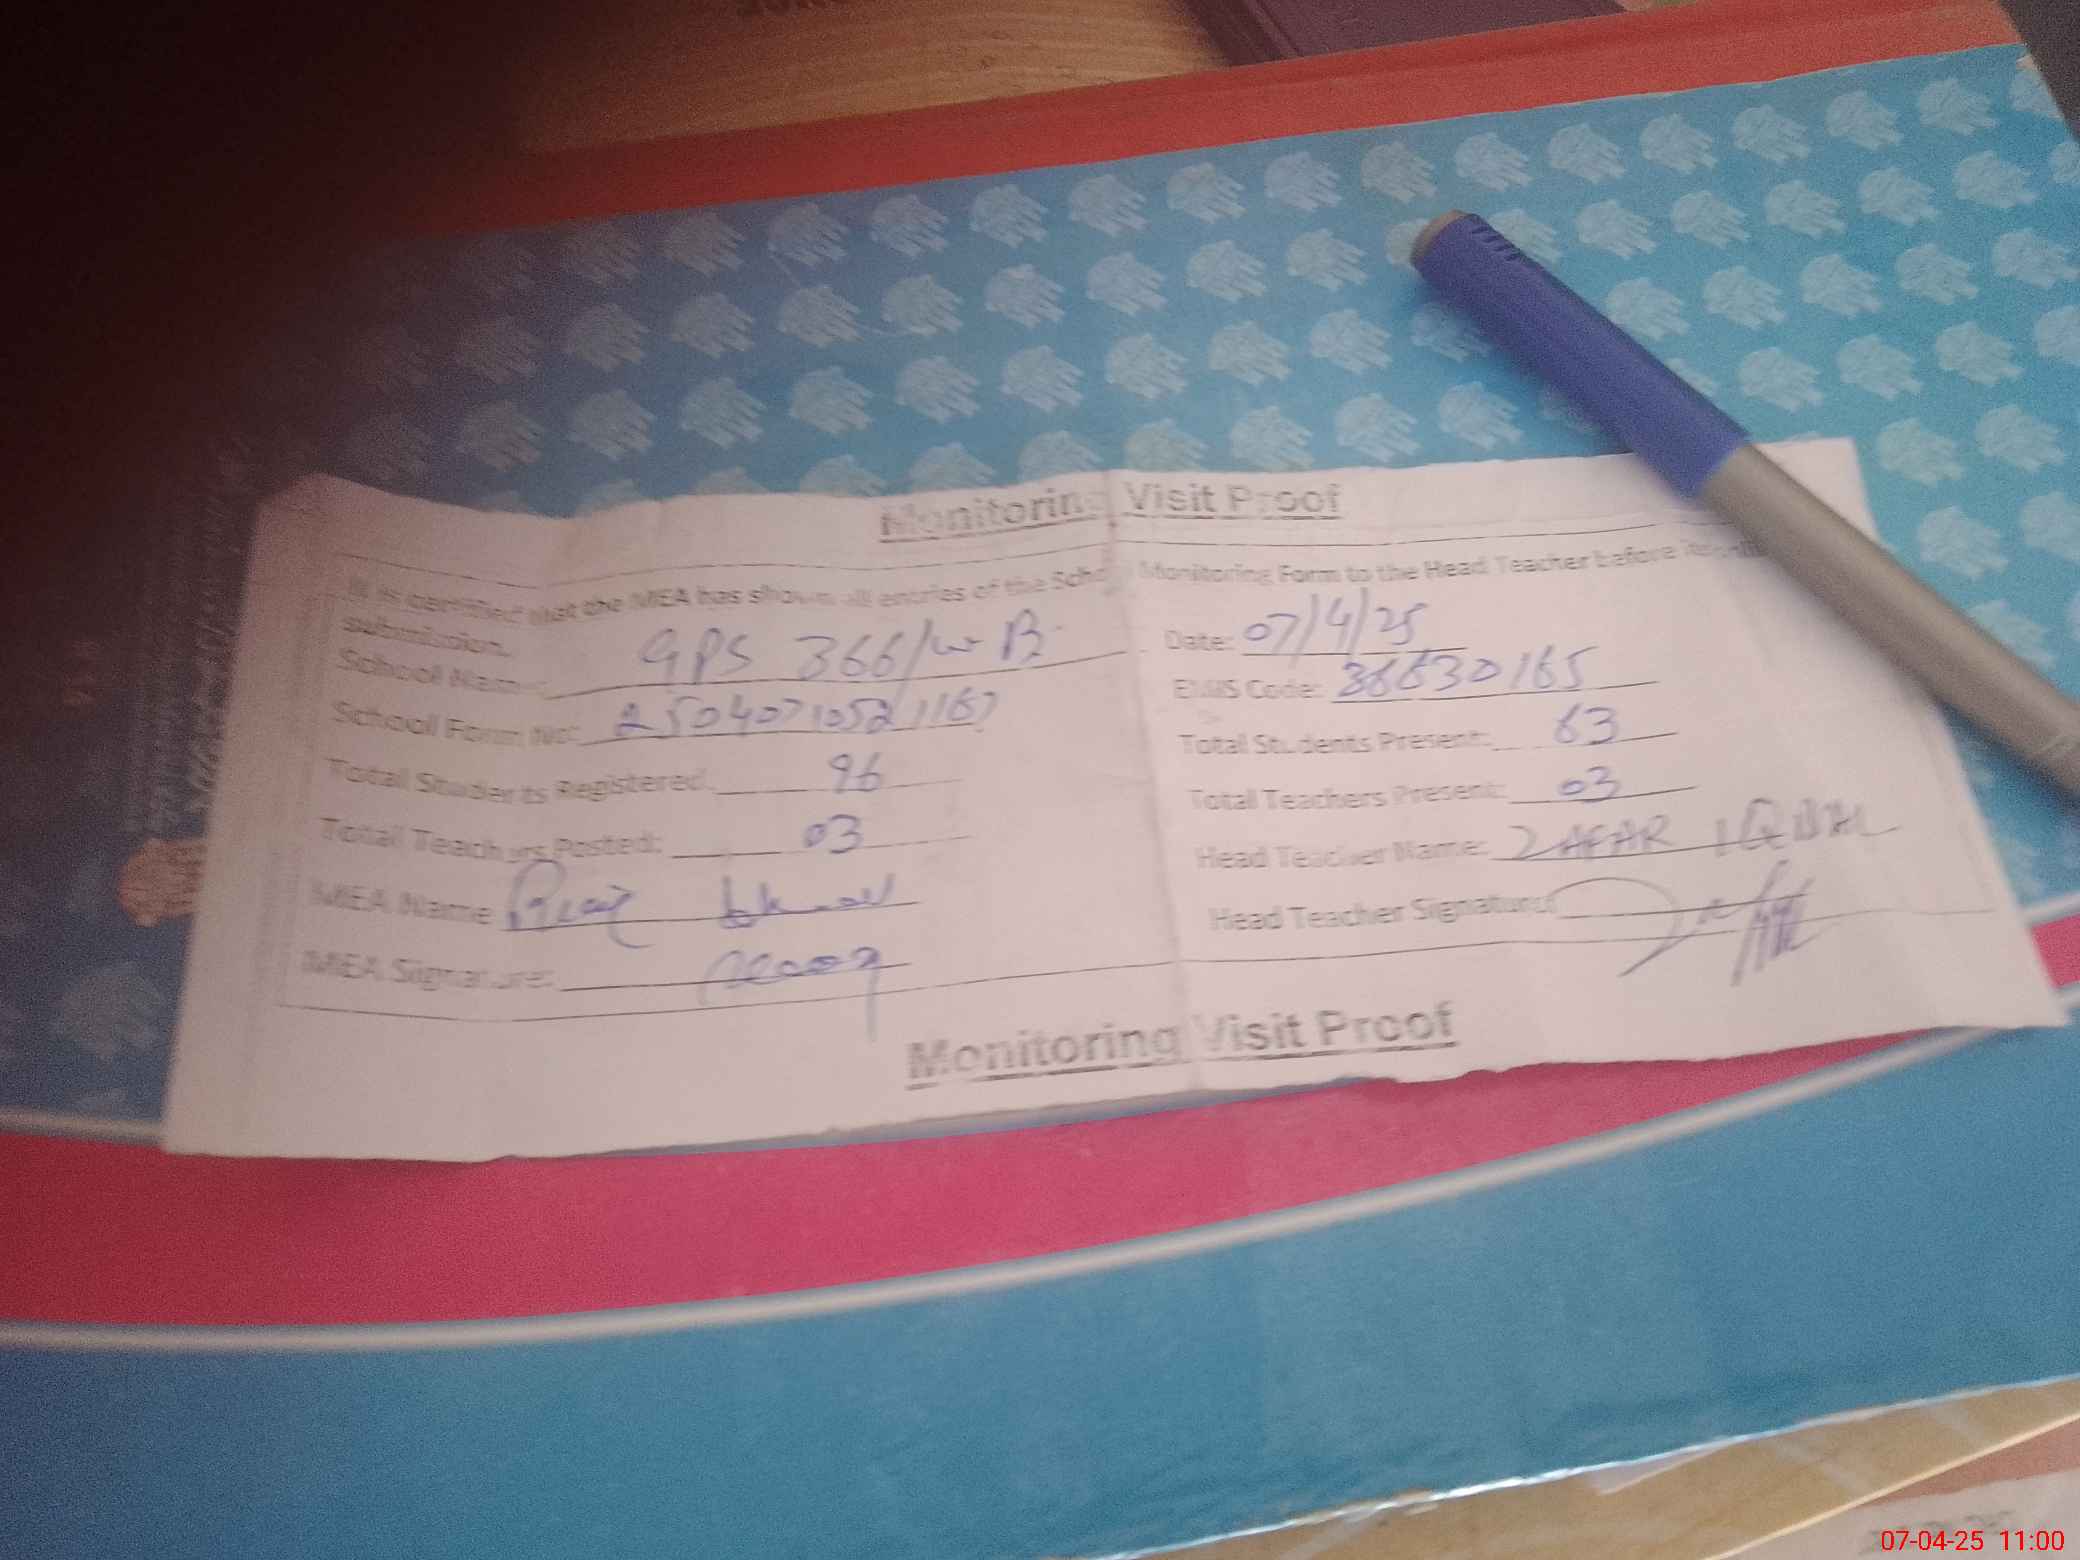 Monitoring Visit Proof
It is certified that the MEA has shown all entries of the School Monitoring Form to the Head Teacher before its
submission.
School Name: GPS 366/WB
Date: 07/4/25
School Form No: 2504071052116
EMIS Code: 36630165
Total Students Registered: 96
Total Students Present: 63
Total Teachers Posted: 03
Total Teachers Present: 03
MEA Name
Head Teacher Name: ZAFAR IQBAL
MEA Signature:
Head Teacher Signature:
Monitoring Visit Proof
07-04-25 11:00